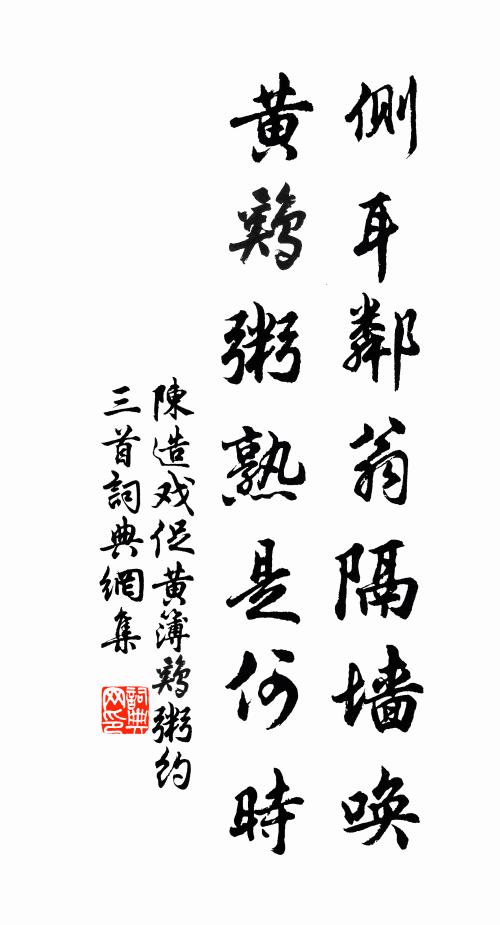 側耳鄰翁隔墻喚
黄鷄粥熟是何時
陳造戏促黄簿鷄粥約
三首詞典網集
詞典网印